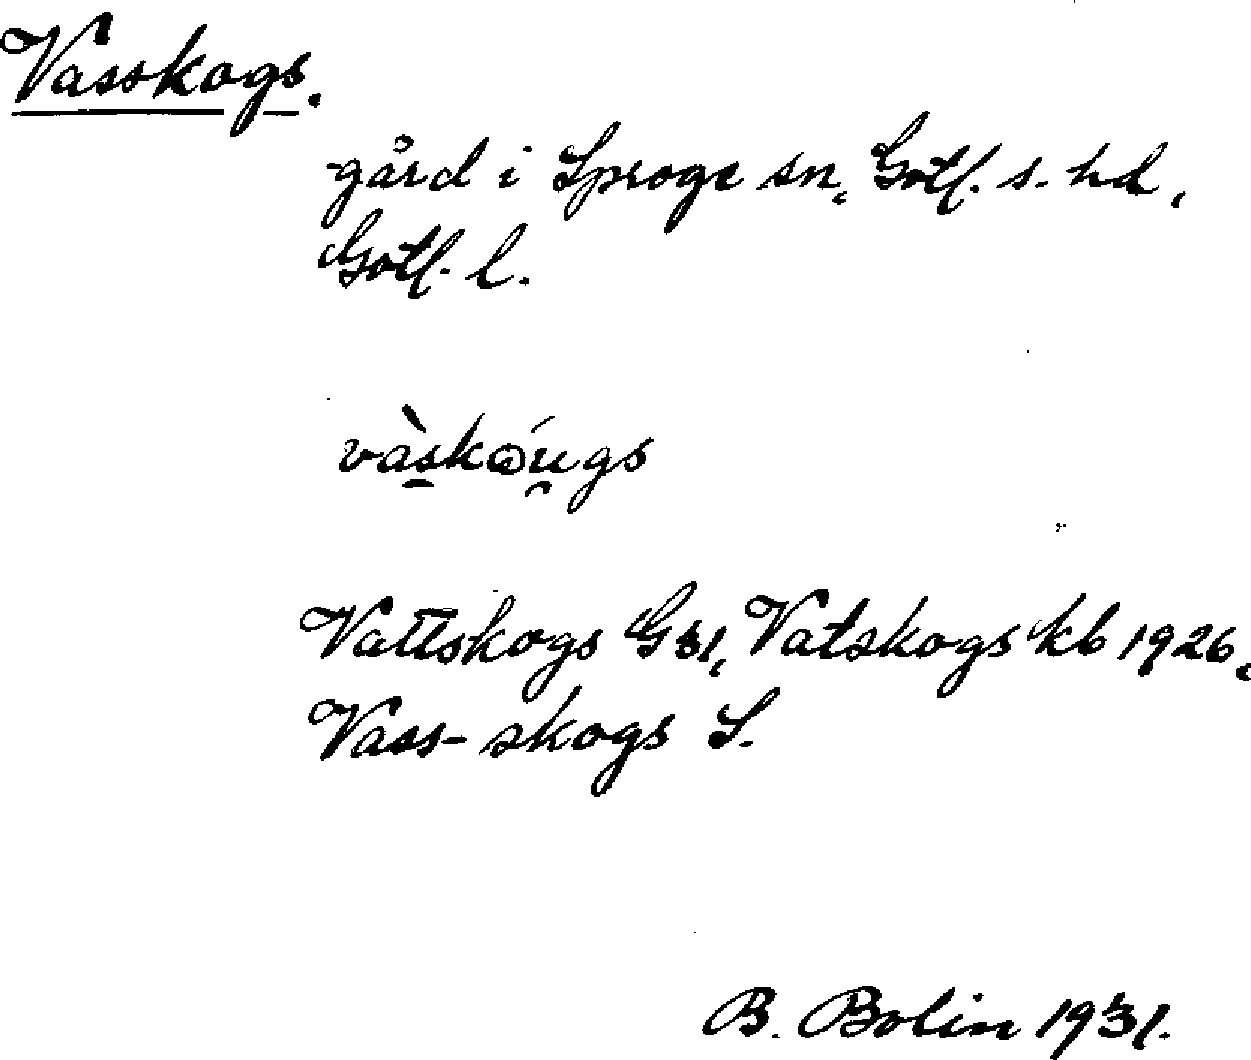 Vasskogs.
gård i Sproge sn, Gotl. s. hd,
Gotl. l.
vàskѡ́u̯gs
Vattskogs GSl, Vatskogs kb 1926,
Vass-skogs S.
B. Bolin 1931.